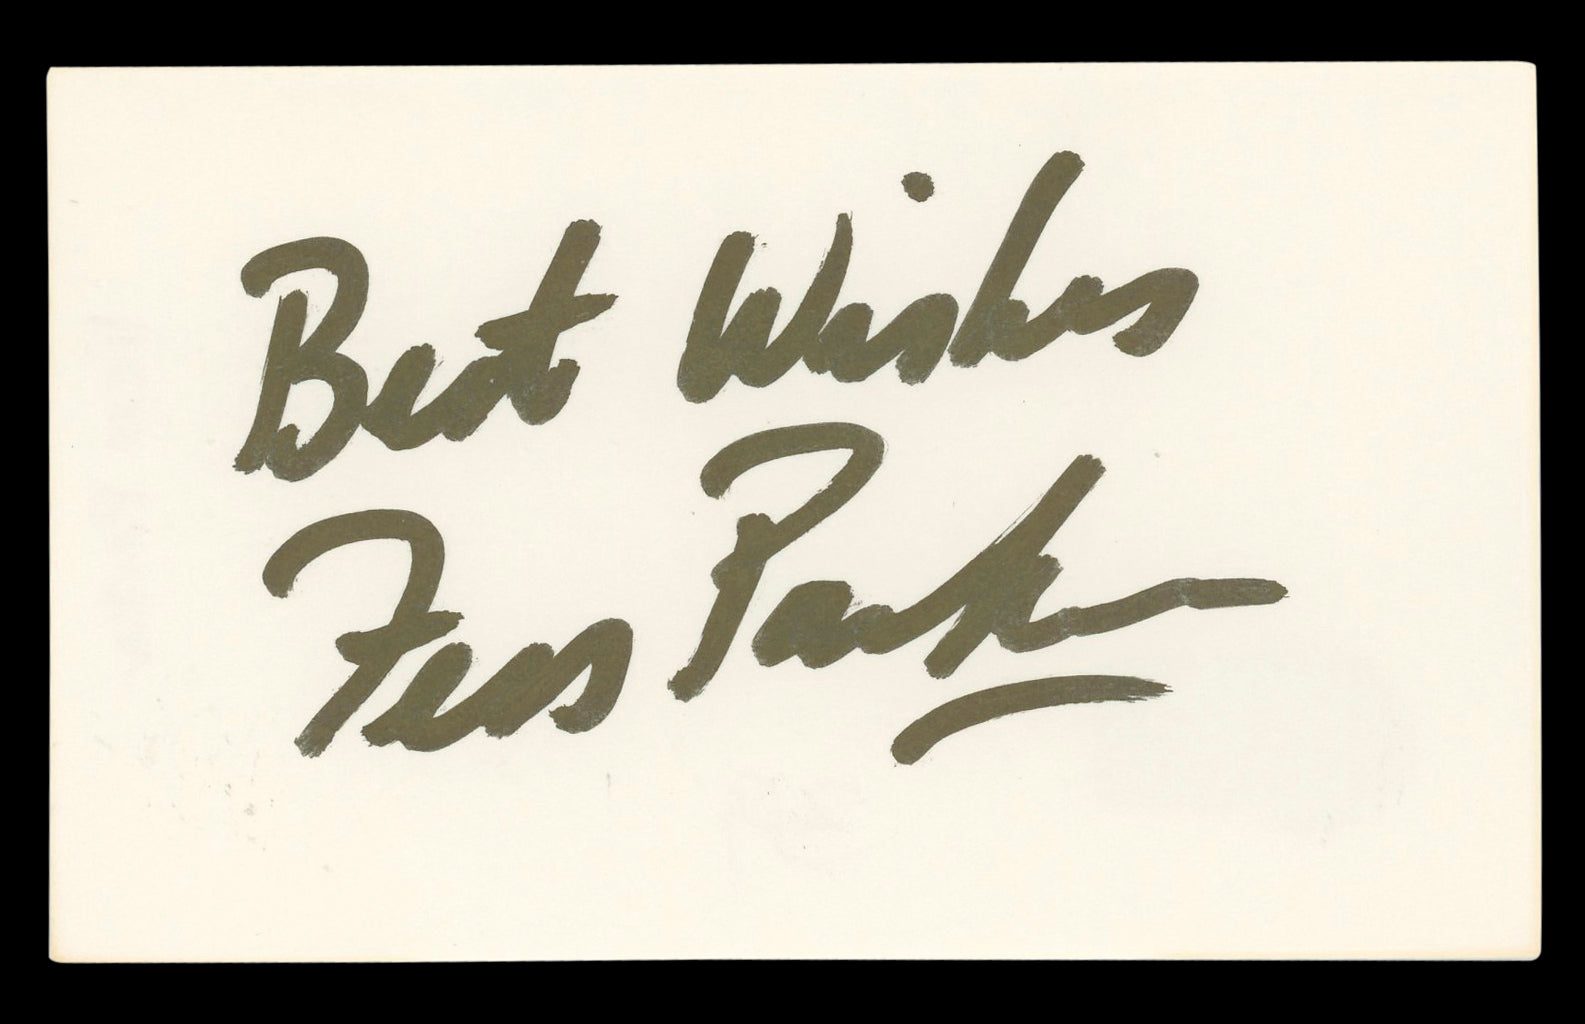 Best Wishes
Fess Parker